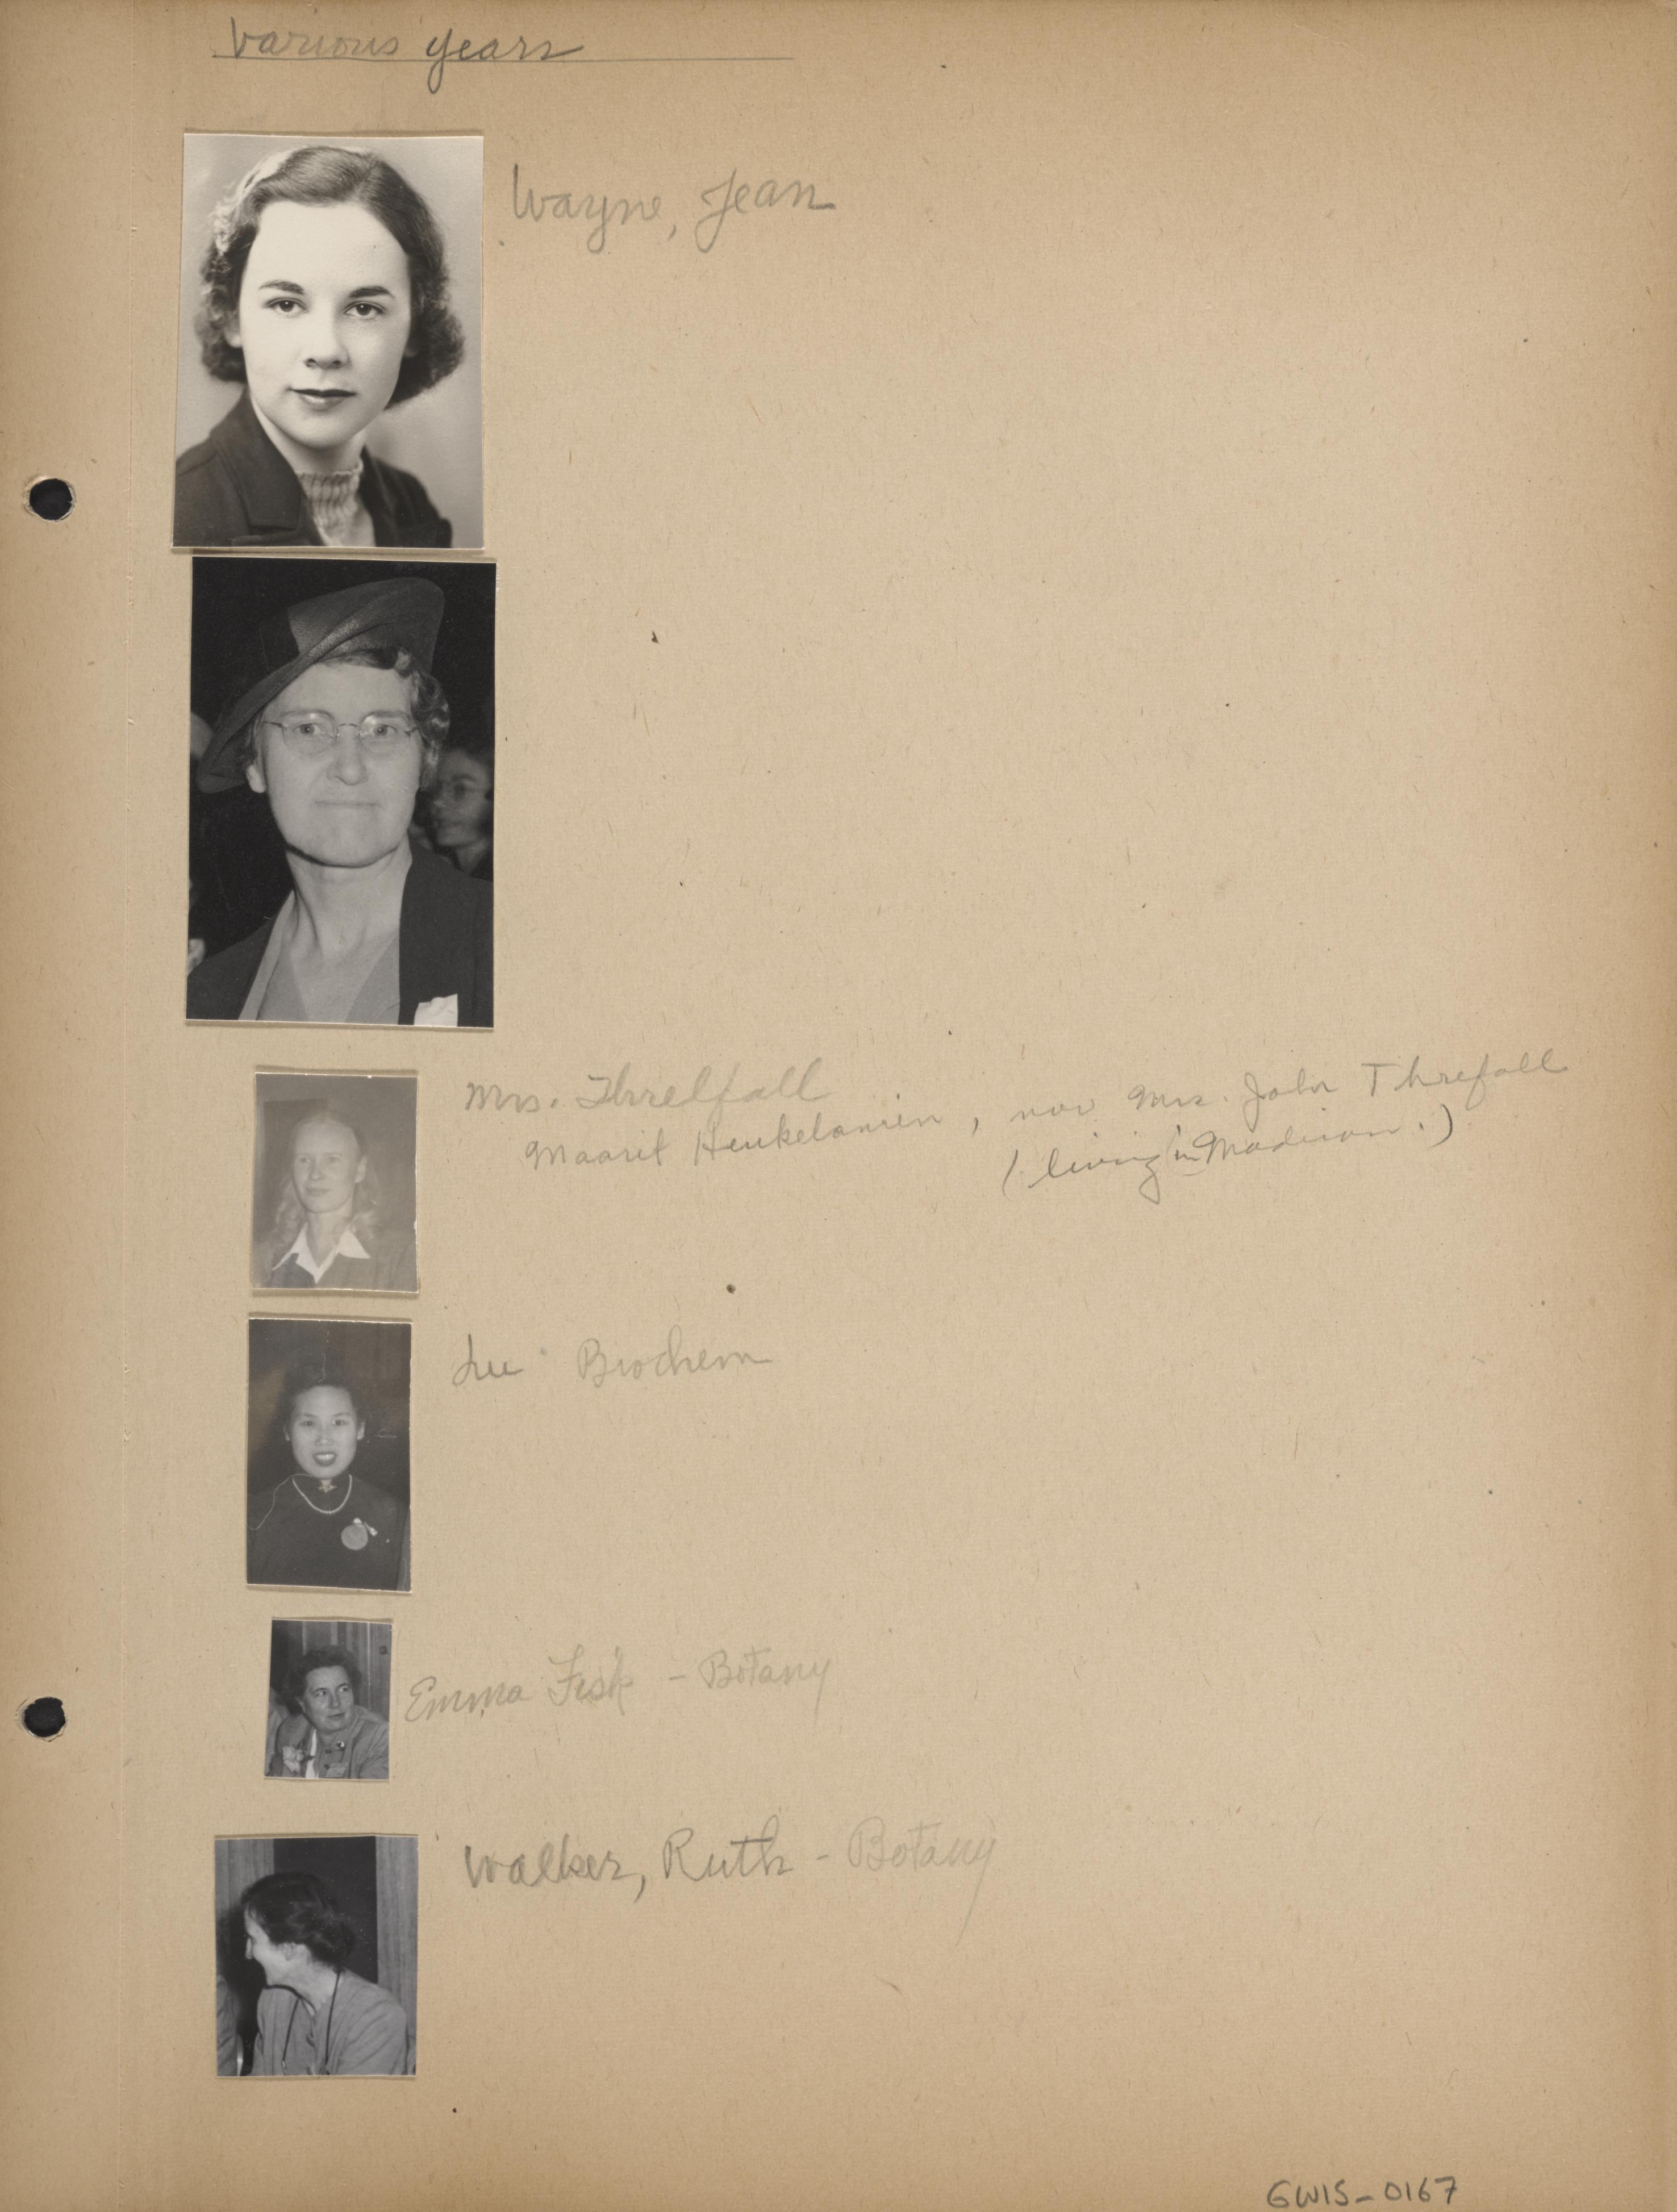 Various years
Wayne, Jean
Mrs. Threlfall
Maarit Henkelanien, now Mrs. John Threfall
(living in Madison.)
Lee Biochem
Emma Fisk - Botany
Walker, Ruth - Botany
GWIS-0167